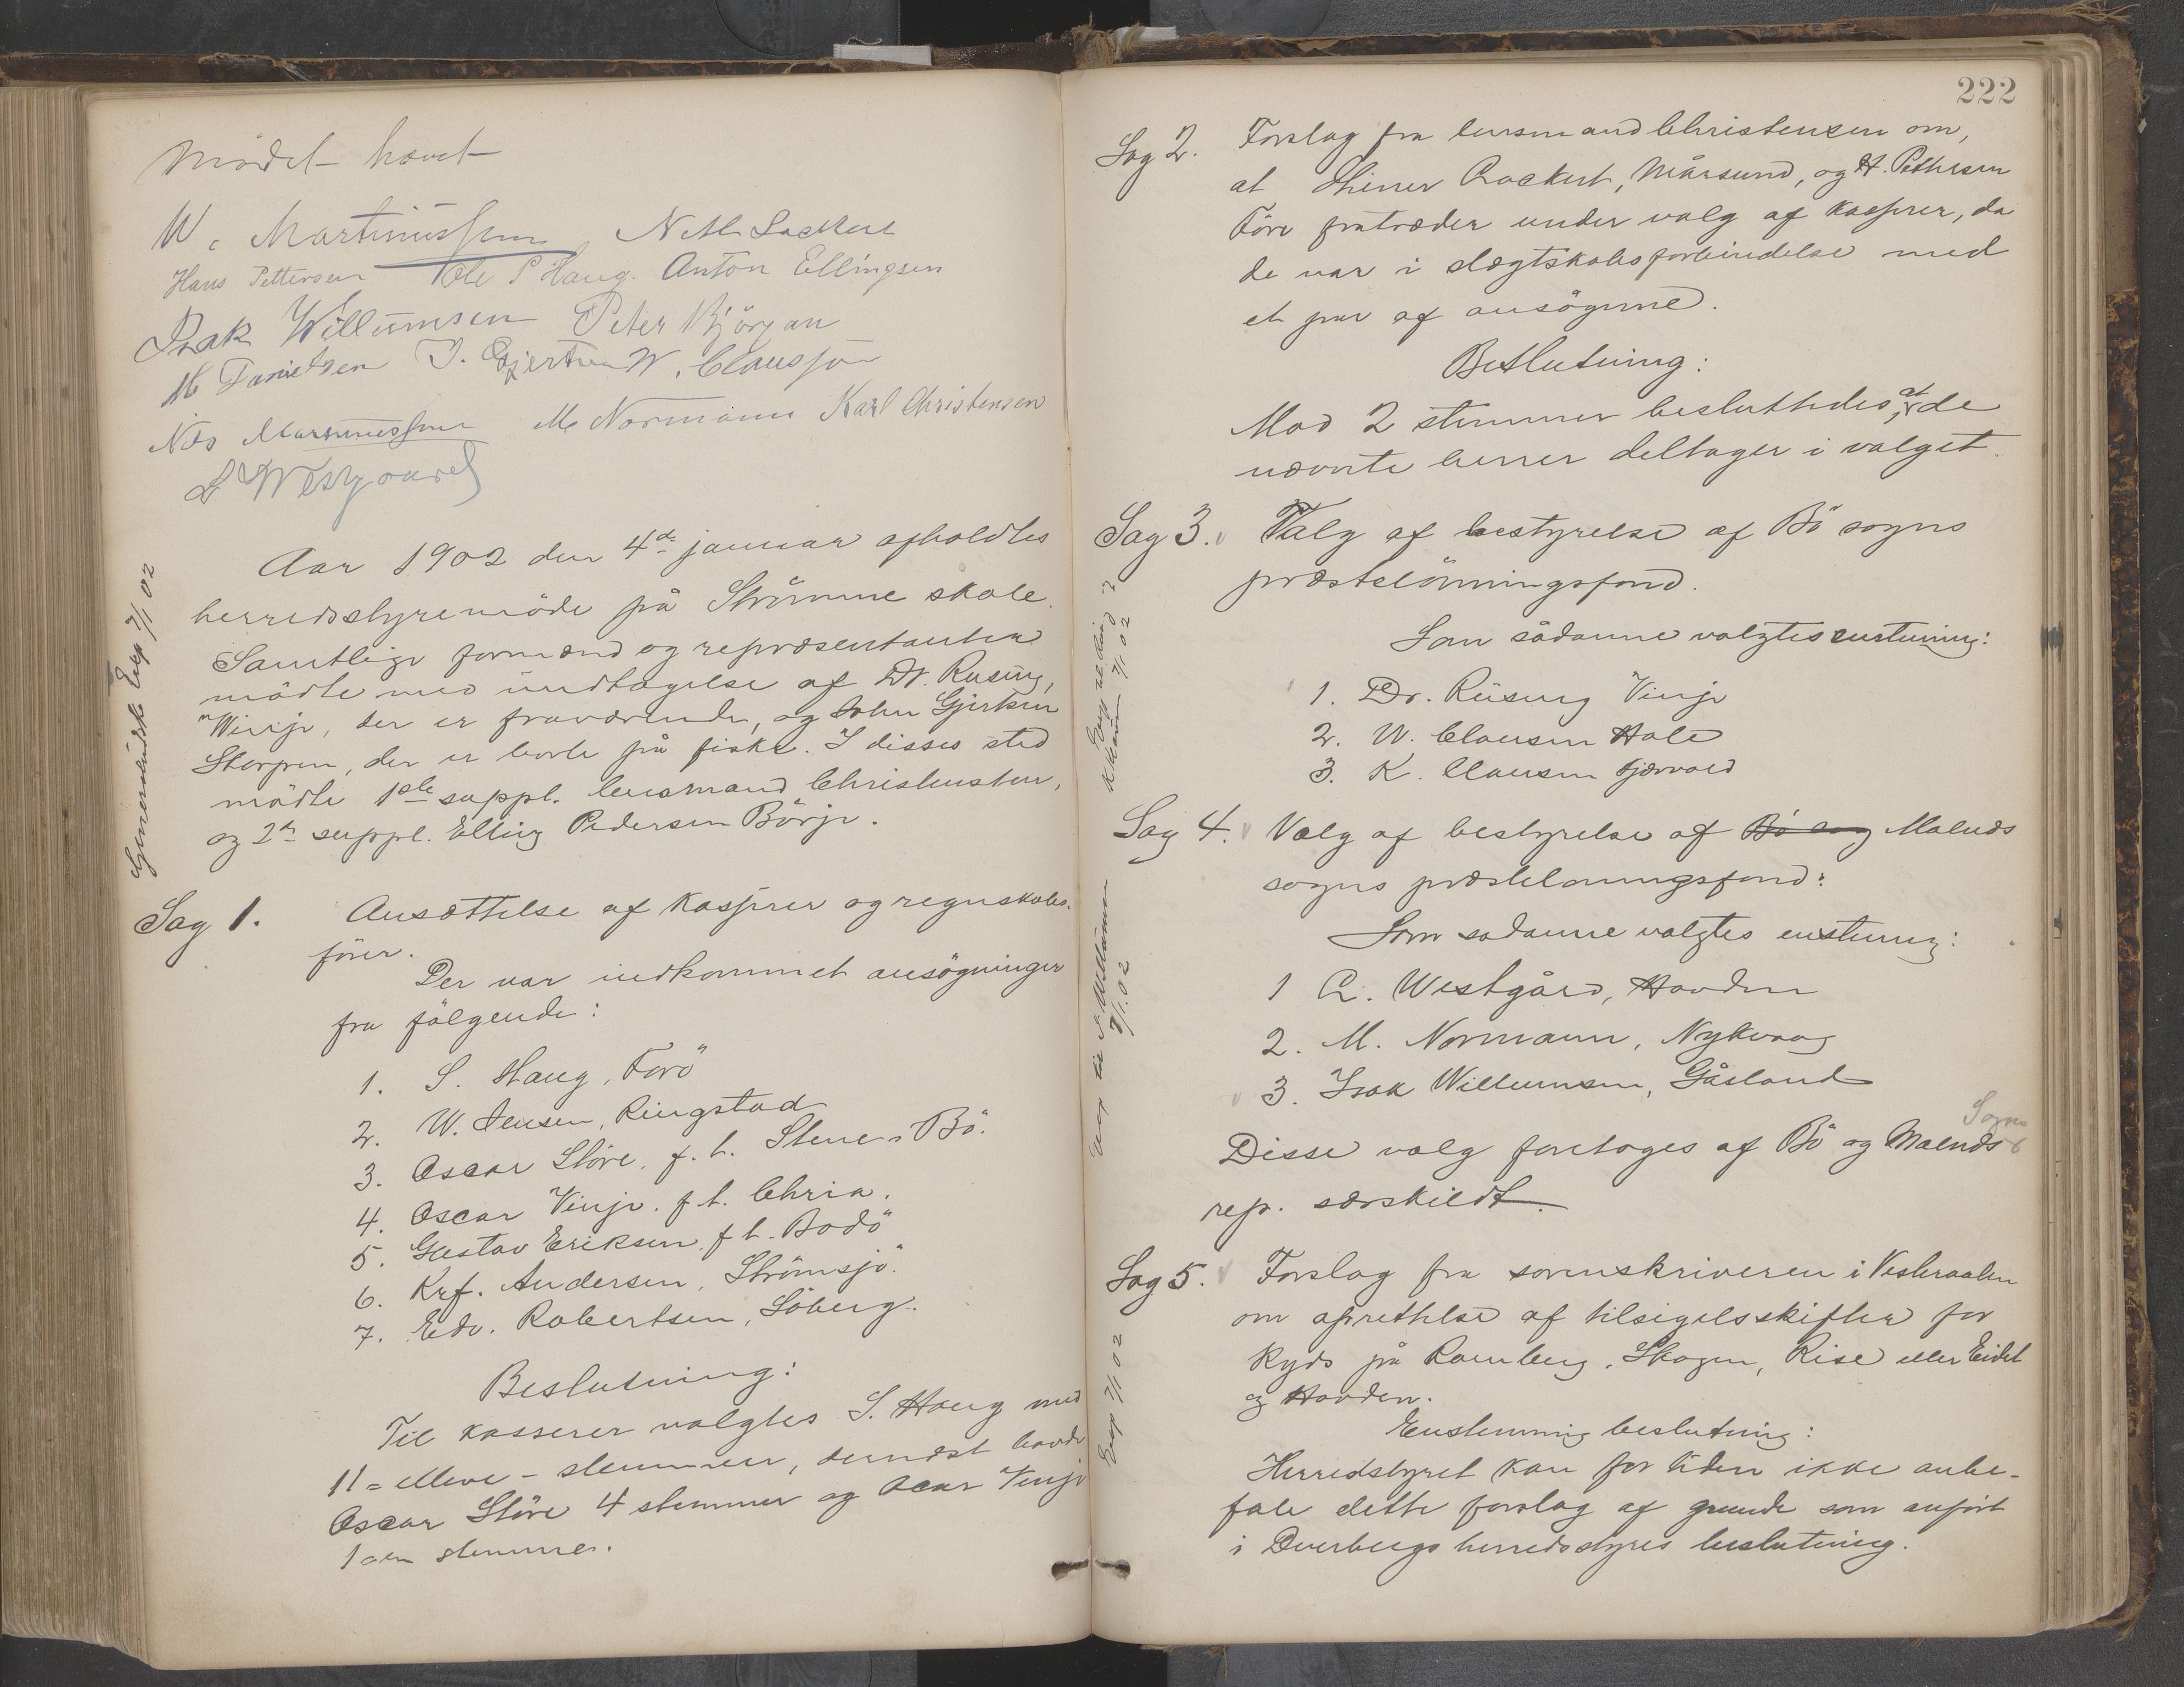 Mödet hævet
W. Martinussen
Hans Pettersen Ole P Haug. Anton Ellingsen
Isak Willumsen Peter Björgan
M Danielsen J. Gjertsen W. Claussen
Nils Martinussen M. Normann Karl Christensen
L Westgaard
Aar 1902 den 4de januar afholdtes
herredsstyremöde på Strömme skole.
Samtlige formænd og repræsentanter
mödte med undtagelse af Dr. Rusing,
Winje, der er fraværende, og John Gjertsen
Skarpen, der er borte på fiske. I disses sted
mödte 1ste suppl. lensmand Christensen,
og 2den suppl. Elling Pedersen Börje.
Sag 1. Ansættelse af kasserer og regnskabs-
förer.
Der var indkommet ansögninger
fra fölgende:
1. S. Haug, Forö
2. W. Jensen, Ringstad
3. Oscar Störe, f. t. Steine i Bö.
4. Oscar Vinje. f. t. Chria.
5. Gustav Eriksen f t. Bodö
6. Krf. Andersen, Strömsjö.
7. Edv. Robertsen, Söberg.
Beslutning:
Til kasserer valgtes S. Haug med
11 = elleve - stemmer, dernæst havde
Oscar Störe 4 stemmer og Oscar Vinje
1 = en stemme.
222
Sag 2. Forslag fra lensmand Christensen om,
at Lockert, Mårsund, og H. Pettersen
Före fratræder under valg af kasserer, da
de var i slægtskabsforbindelse med
et par af ansögerne.
Beslutning:
Mod 2 stemmer besluttedes, at de
nævnte herrer deltager i valget.
Sag 3. Valg af bestyrelse af Bö sogns
præstelönningsfond.
Som sådanne valgtes enstemmig:
1. Dr. Rüsing Vinje
2. W. Clausen Hole
3. K. Clausen Fjærvold
Sag 4. Valg af bestyrelse af Bö sog Malnes
sogns præstelönningsfond:
Som sådanne valgtes enstemmig:
1 L. Westgård, Hovden
2. M. Normann, Nykvaag
3. Isak Willumsen, Gåsland
Sogns
Disse valg foretoges af Bö og Malnes
rep. særskildt.
Sag 5. Forslag fra sorenskriveren i Vesteraalen
om oprettelse af tilsigelsskifter for
skyds på Ramberg, Skagen, Rise eller Eidet
og Hovden.
Enstemmig beslutning:
Herredstyret kan for tiden ikke anbe-
fale dette forslag af grunde som anfört
i Dverbergs herredsstyres beslutning.
Exp 7/1 02